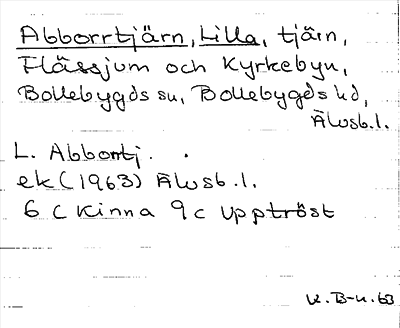 Abborrtjärn, Lilla, tjärn,
Flässjum och Kyrkebyn,
Bollebygds sn, Bollebygds hd,
Älvsb.l.
L. Abborrtj.
ek (1963) Älvsb.l.
6 c Kinna 9 c Uppströst
K. B-n. 63